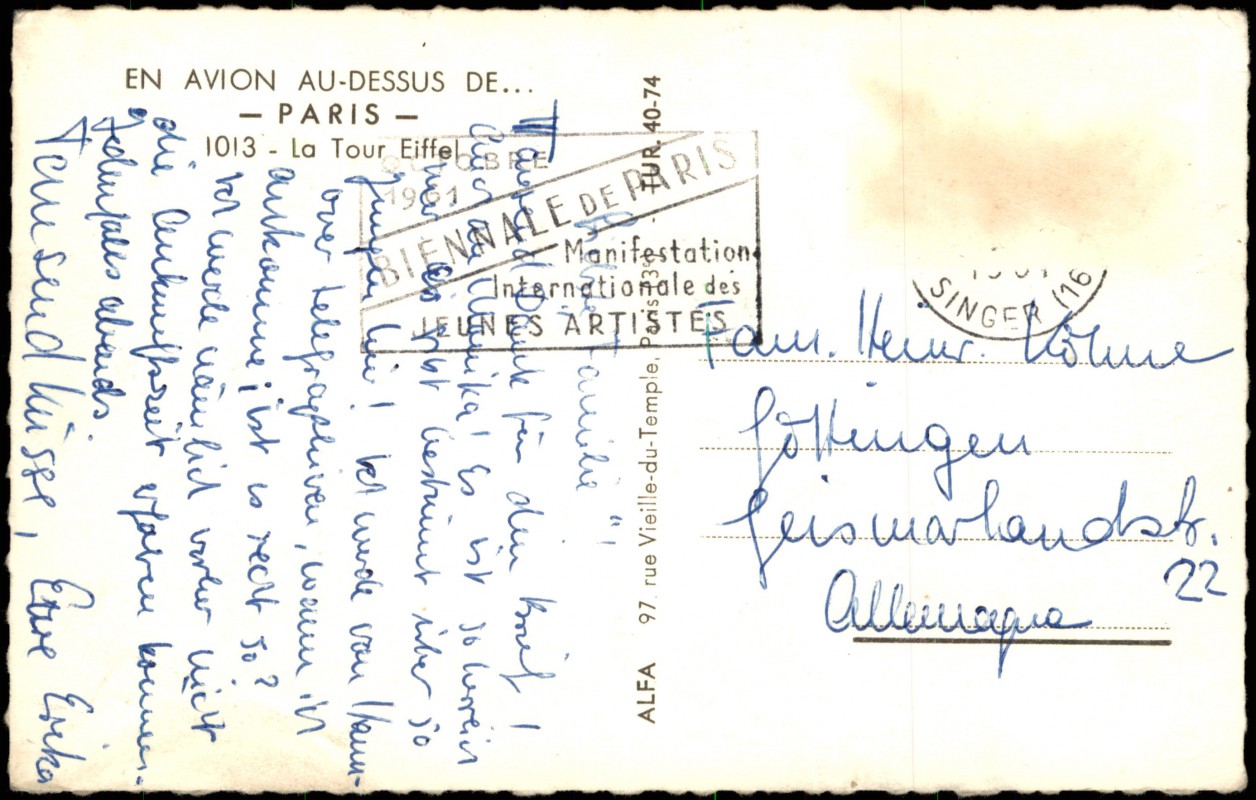 EN AVION AU-DESSUS DE...
— PARIS —
1013 - La Tour Eiffel
OCTOBRE
1961
BIENNALE DE PARIS
Manifestation
Internationale des
JEUNES ARTISTES
ALFA 97, rue Vieille-du-Temple, Paris-3e - TUR. 40-74
SINGER (16
Fam. Heinr. Köhne
Göttingen
Geismarlandstr.
22
Allemagne
Familie!
Tausend Dank für den Brief!
Es ist so herrlich
hier. Es geht bestimmt über so
Jungen hin! Ich werde von Hann-
over telegraphieren, wann ich
ankomme, ist es recht so?
Ich werde nämlich vorher nicht
die Ankunftszeit erfahren können.
Jedenfalls abends.
Tausend Küsse, Eure Erika